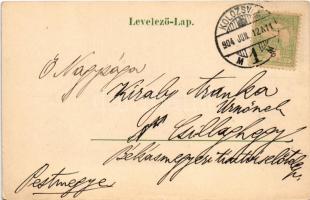 Levelező-Lap.
KOLOZSV
904 JUN. 12
Ő Nagysága
Király Aranka
Urnőnek
Csillaghegy
Békásmegyeri
Pestmegye